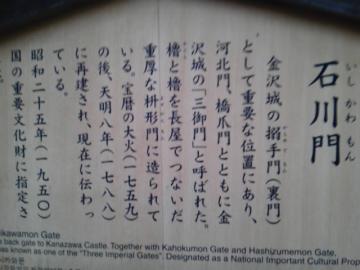 いし かわ もん
石川門
金沢城の搦手門（裏門）
として重要な位置にあり、
河北門、橋爪門とともに金
沢城の「三御門」と呼ばれた。
櫓と櫓を長屋でつないだ
重厚な枡形門に造られて
いる。宝暦の大火（一七五九）
の後、天明八年（一七八八）
に再建され、現在に伝わっ
ている。
昭和二十五年（一九五〇）
国の重要文化財に指定さ
ikawamon Gate
back gate to Kanazawa Castle. Together with Kahokumon Gate and Hashizumemon Gate,
as known as one of the "Three Imperial Gates". Designated as a National Important Cultural Prop